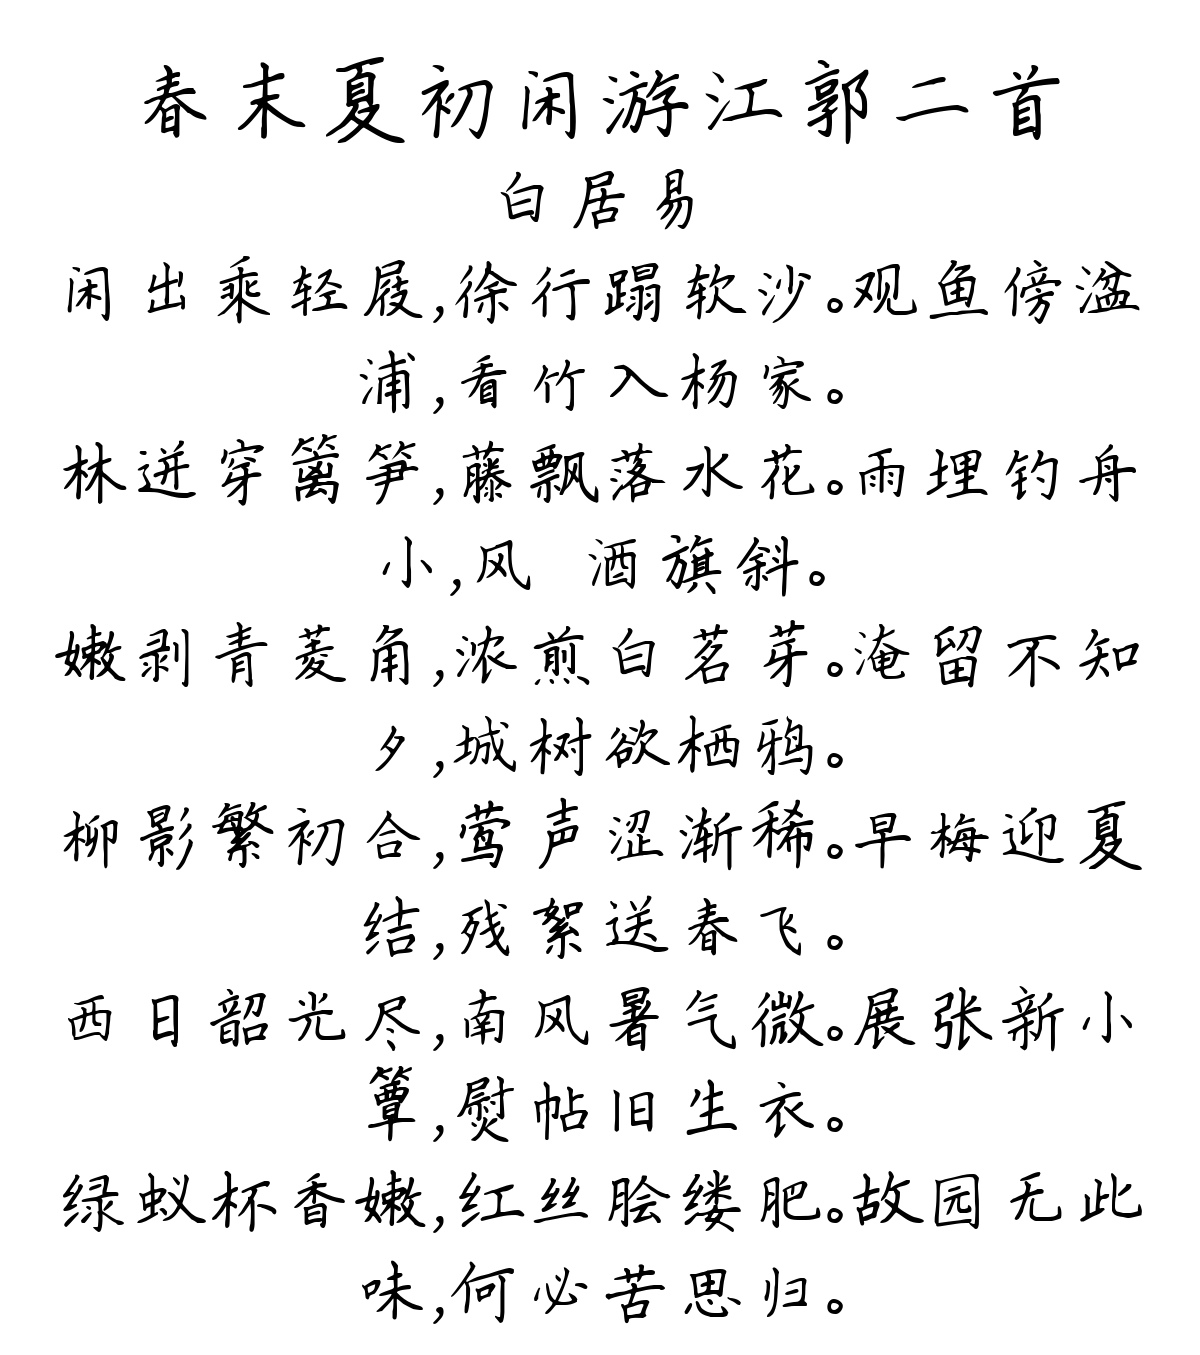 春末夏初闲游江郭二首
白居易
闲出乘轻屐,徐行蹋软沙。观鱼傍湓
浦,看竹入杨家。
林迸穿篱笋,藤飘落水花。雨埋钓舟
小,风 酒旗斜。
嫩剥青菱角,浓煎白茗芽。淹留不知
夕,城树欲栖鸦。
柳影繁初合,莺声涩渐稀。早梅迎夏
结,残絮送春飞。
西日韶光尽,南风暑气微。展张新小
簟,熨帖旧生衣。
绿蚁杯香嫩,红丝脍缕肥。故园无此
味,何必苦思归。